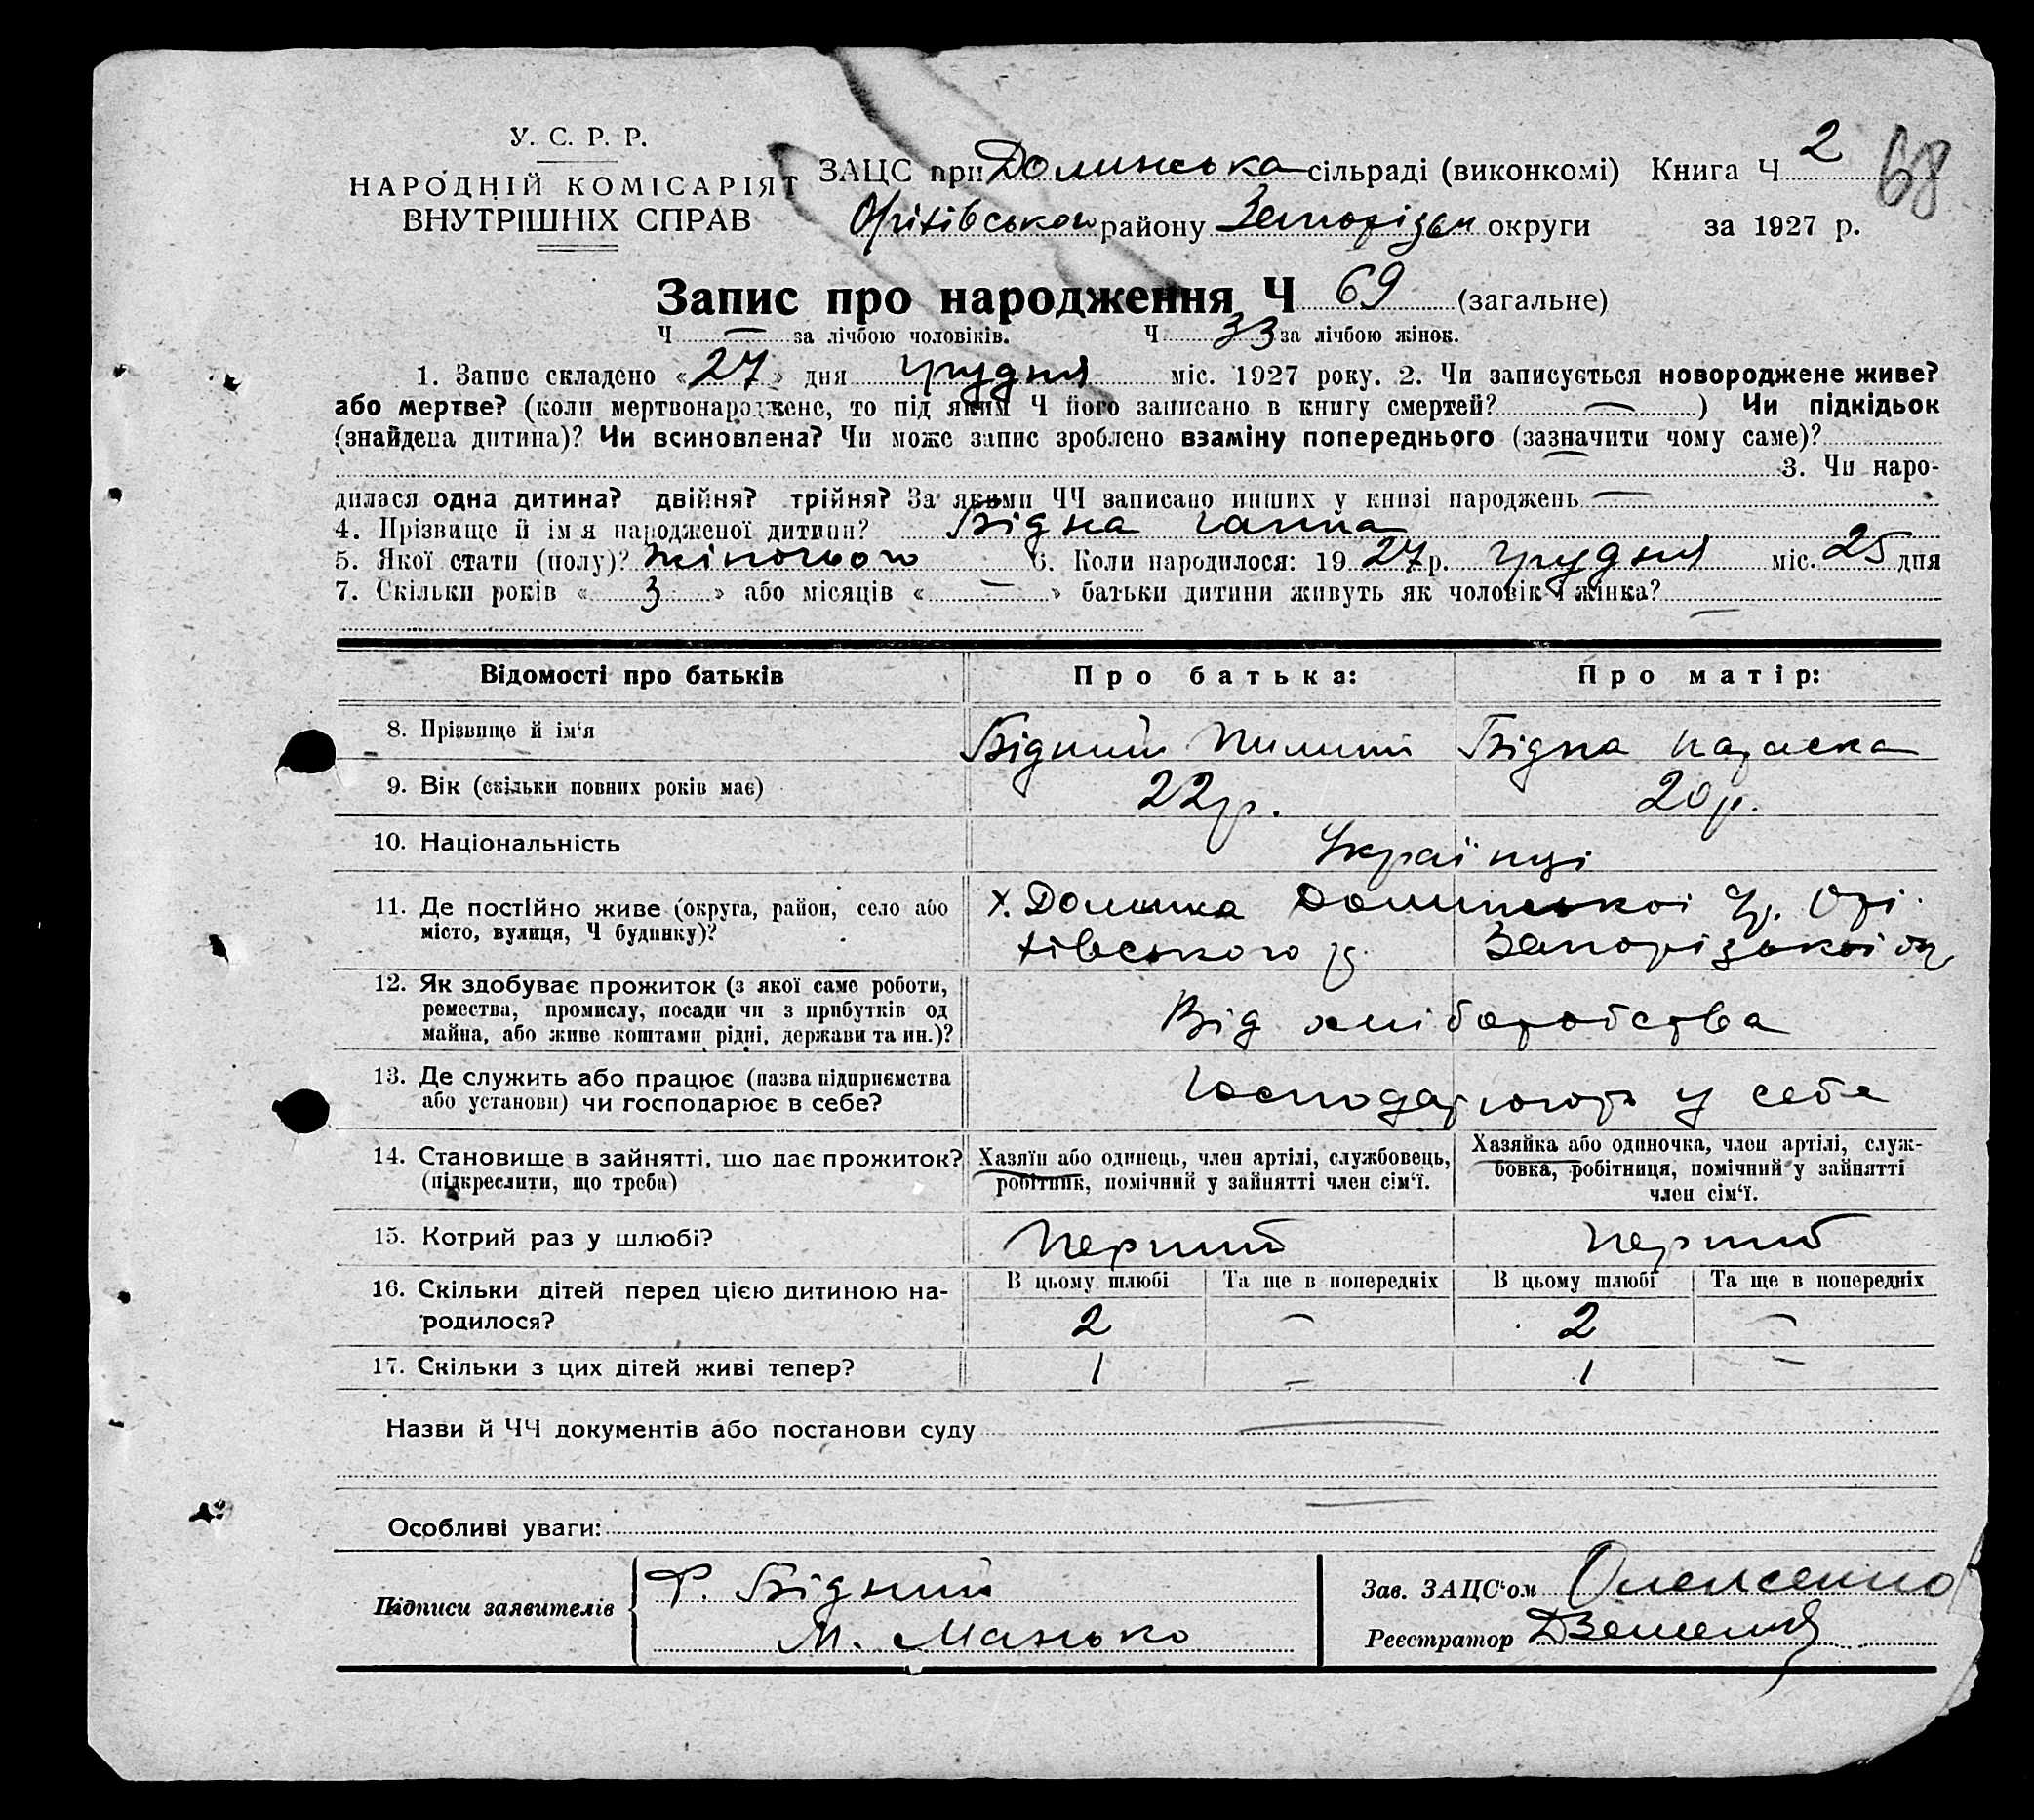 У. С. Р. Р.
НАРОДНІЙ КОМІСАРІЯТ
ВНУТРІШНІХ СПРАВ
ЗАЦС при Долинська сільраді (виконкомі) Книга Ч 2 68
Оріхівського району Запорізьк округи за 1927 р.
Запис про народження Ч 69 (загальне)
Ч — за лічбою чоловіків. Ч 33 за лічбою жінок.
1. Запис складено «27» дня грудня міс. 1927 року. 2. Чи записується новороджене живе?
або мертве? (коли мертвонароджене, то під яким Ч його записано в книгу смертей? —) Чи підкідьок
(знайдена дитина)? Чи всиновлена? Чи може запис зроблено взаміну попереднього (зазначити чому саме)?
— 3. Чи наро-
дилася одна дитина? двійня? трійня? За якими ЧЧ записано инших у книзі народжень —
4. Прізвище й ім'я народженої дитини? Бідна Ганна
5. Якої стати (полу)? жіночого 6. Коли народилося: 1927 р. грудня міс. 25 дня
7. Скільки років «3» або місяців «—» батьки дитини живуть як чоловік і жінка? —
Відомості про батьків Про батька: Про матір:
8. Прізвище й ім'я Бідний Пилип Бідна Параска
9. Вік (скільки повних років має) 22 р. 20 р.
10. Національність Українці
11. Де постійно живе (округа, район, село або х. Долинка Долинської с/р. Орі-
місто, вулиця, Ч будинку)? хівського р. Запорізької ок
12. Як здобуває прожиток (з якої саме роботи,
ремества, промислу, посади чи з прибутків од Від хліборобства
майна, або живе коштами рідні, держави та ин.)?
13. Де служить або працює (назва підприємства Господарюють у себе
або установи) чи господарює в себе?
14. Становище в зайнятті, що дає прожиток? Хазяїн або одинець, член артілі, службовець, Хазяйка або одиночка, член артілі, служ-
(підкреслити, що треба) робітник, помічний у зайнятті член сім'ї. бовка, робітниця, помічний у зайнятті
член сім'ї.
15. Котрий раз у шлюбі? Перший Перший
16. Скільки дітей перед цією дитиною на- В цьому шлюбі Та ще в попередніх В цьому шлюбі Та ще в попередніх
родилося? 2 — 2 —
17. Скільки з цих дітей живі тепер? 1 — 1 —
Назви й ЧЧ документів або постанови суду —
Особливі уваги: —
Підписи заявителів Ф. Бідний
М. Манько
Зав. ЗАЦС'ом Олексенко
Реєстратор